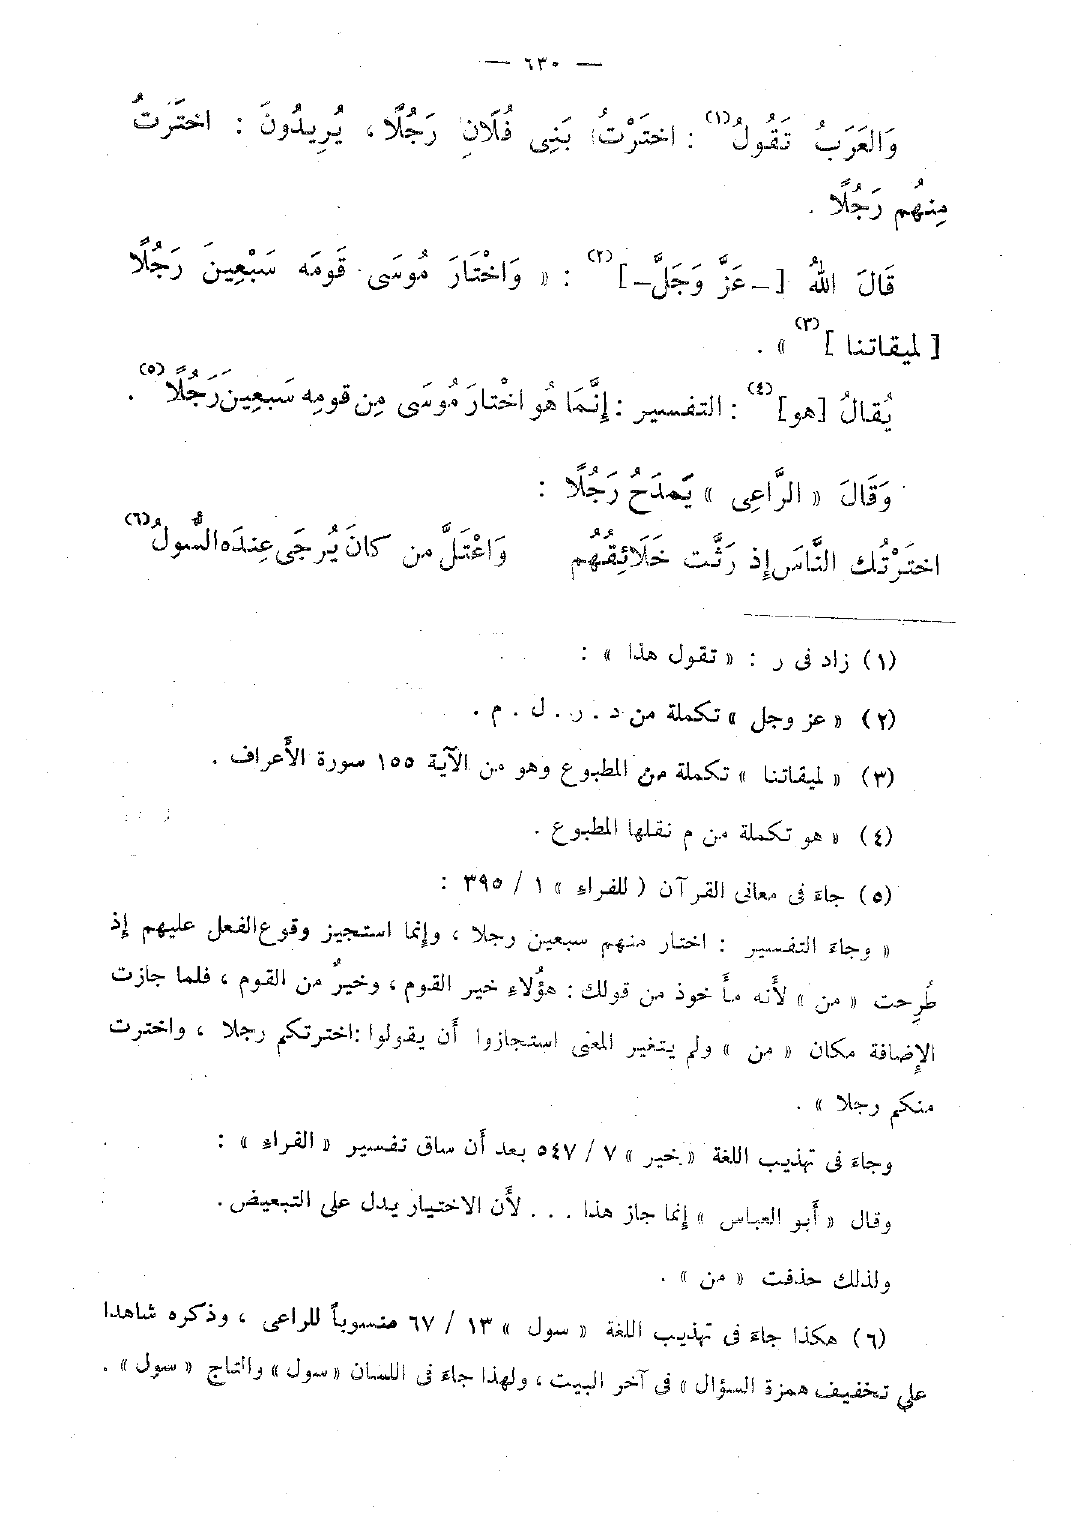 — ٦٣٠ —
وَالعَرَبُ تَقُولُ(١) : اختَرْتُ بَنِى فُلَانٍ رَجُلًا، يُرِيدُونَ : اختَرتُ
مِنهُم رَجُلًا .
قَالَ اللهُ [ – عَزَّ وَجَلَّ – ](٢) : « وَاخْتَارَ مُوسَى قَومَه سَبْعِينَ رَجُلًا
[ لميقاتنا ](٣) » .
يُقالُ [هو](٤) : التفسير : إِنَّمَا هُو اخْتارَ مُوسَى مِن قومِه سَبعِينَ رَجُلًا(٥) .
وَقَالَ « الرَّاعِى » يَمدَحُ رَجُلًا :
اختَرْتُك النَّاسَ إِذ رَثَّت خَلَائِقُهُم وَاعْتَلَّ من كانَ يُرجَى عِندَه السُّولُ(٦)
(١) زاد فى ر : « تقول هذا » :
(٢) « عز وجل » تكملة من د . ر . ل . م .
(٣) « لميقاتنا » تكملة من المطبوع وهو من الآية ١٥٥ سورة الأَعراف .
(٤) « هو تكملة من م نقلها المطبوع .
(٥) جاءَ فى معانى القرآن ( للفراء » ١ / ٣٩٥ :
« وجاءَ التفسير : اختار منهم سبعين رجلا ، وإنما استجيز وقوع الفعل عليهم إذ
طُرِحت « من » لأَنه مأْ خوذ من قولك : هؤُلاءِ خير القوم ، وخيرٌ من القوم ، فلما جازت
الإِضافة مكان « من » ولم يتغير المعنى استجازوا أَن يقولوا : اخترتكم رجلا ، واخترت
منكم رجلا » .
وجاءَ فى تهذيب اللغة « خير » ٧ / ٥٤٧ بعد أَن ساق تفسير « الفراء » :
وقال « أَبو العباس » إنما جاز هذا . . . لأَن الاختيار يدل على التبعيض .
ولذلك حذفت « من » .
(٦) هكذا جاءَ فى تهذيب اللغة « سول » ١٣ / ٦٧ منسوباً للراعى ، وذكره شاهدا
على تخفيف همزة السؤال » فى آخر البيت ، ولهذا جاءَ فى اللسان « سول » والتاج « سول » .